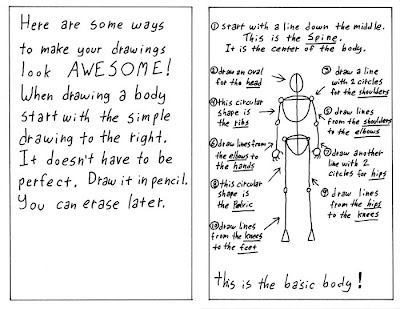 Here are some ways
to make your drawings
look AWESOME!
When drawing a body
start with the simple
drawing to the right.
It doesn't have to be
perfect. Draw it in pencil.
You can erase later.
① start with a line down the middle.
This is the Spine.
It is the center of the body.
② draw an oval
for the head
③ draw a line
with 2 circles
for the shoulders
④ this circular
shape is
the ribs
⑤ draw lines
from the shoulders
to the elbows
⑥ draw lines from
the elbows to
the hands
⑦ draw another
line with 2
circles for hips
⑧ this circular
shape is
the Pelvic
⑨ draw lines
from the hips
to the knees
⑩ draw lines
from the knees
to the feet
this is the basic body!